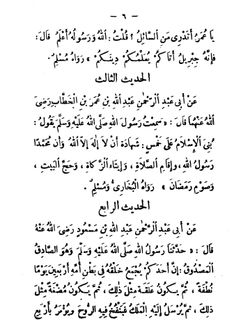 — ٦ —
يَا عُمَرُ أَتَدْرِي مَنِ السَّائِلُ ؟ قُلْتُ : اللهُ وَرَسُولُهُ أَعْلَمُ قَالَ :
فَإِنَّهُ جِبْرِيلُ أَتَاكُمْ يُعَلِّمُكُمْ دِينَكُمْ » رَوَاهُ مُسْلِمٌ .
الحديث الثالث
عَنْ أَبِي عَبْدِ الرَّحْمٰنِ عَبْدِ اللهِ بْنِ عُمَرَ بْنِ الْخَطَّابِ رَضِيَ
اللهُ عَنْهُمَا قَالَ : «سَمِعْتُ رَسُولَ اللهِ صَلَّى اللهُ عَلَيْهِ وَسَلَّمَ يَقُولُ :
بُنِيَ الْإِسْلَامُ عَلَى خَمْسٍ : شَهَادَةِ أَنْ لَا إِلٰهَ إِلَّا اللهُ وَأَنَّ مُحَمَّدًا
رَسُولُ اللهِ ، وَإِقَامِ الصَّلَاةِ ، وَإِيتَاءِ الزَّكَاةِ ، وَحَجِّ الْبَيْتِ ،
وَصَوْمِ رَمَضَانَ » رَوَاهُ الْبُخَارِيُّ وَمُسْلِمٌ .
الحديث الرابع
عَنْ أَبِي عَبْدِ الرَّحْمٰنِ عَبْدِ اللهِ بْنِ مَسْعُودٍ رَضِيَ اللهُ عَنْهُ
قَالَ : «حَدَّثَنَا رَسُولُ اللهِ صَلَّى اللهُ عَلَيْهِ وَسَلَّمَ وَهُوَ الصَّادِقُ
الْمَصْدُوقُ : إِنَّ أَحَدَكُمْ يُجْمَعُ خَلْقُهُ فِي بَطْنِ أُمِّهِ أَرْبَعِينَ يَوْمًا
نُطْفَةً ، ثُمَّ يَكُونُ عَلَقَةً مِثْلَ ذٰلِكَ ، ثُمَّ يَكُونُ مُضْغَةً مِثْلَ
ذٰلِكَ ، ثُمَّ يُرْسَلُ إِلَيْهِ الْمَلَكُ فَيَنْفُخُ فِيهِ الرُّوحَ وَيُؤْمَرُ بِأَرْبَعِ